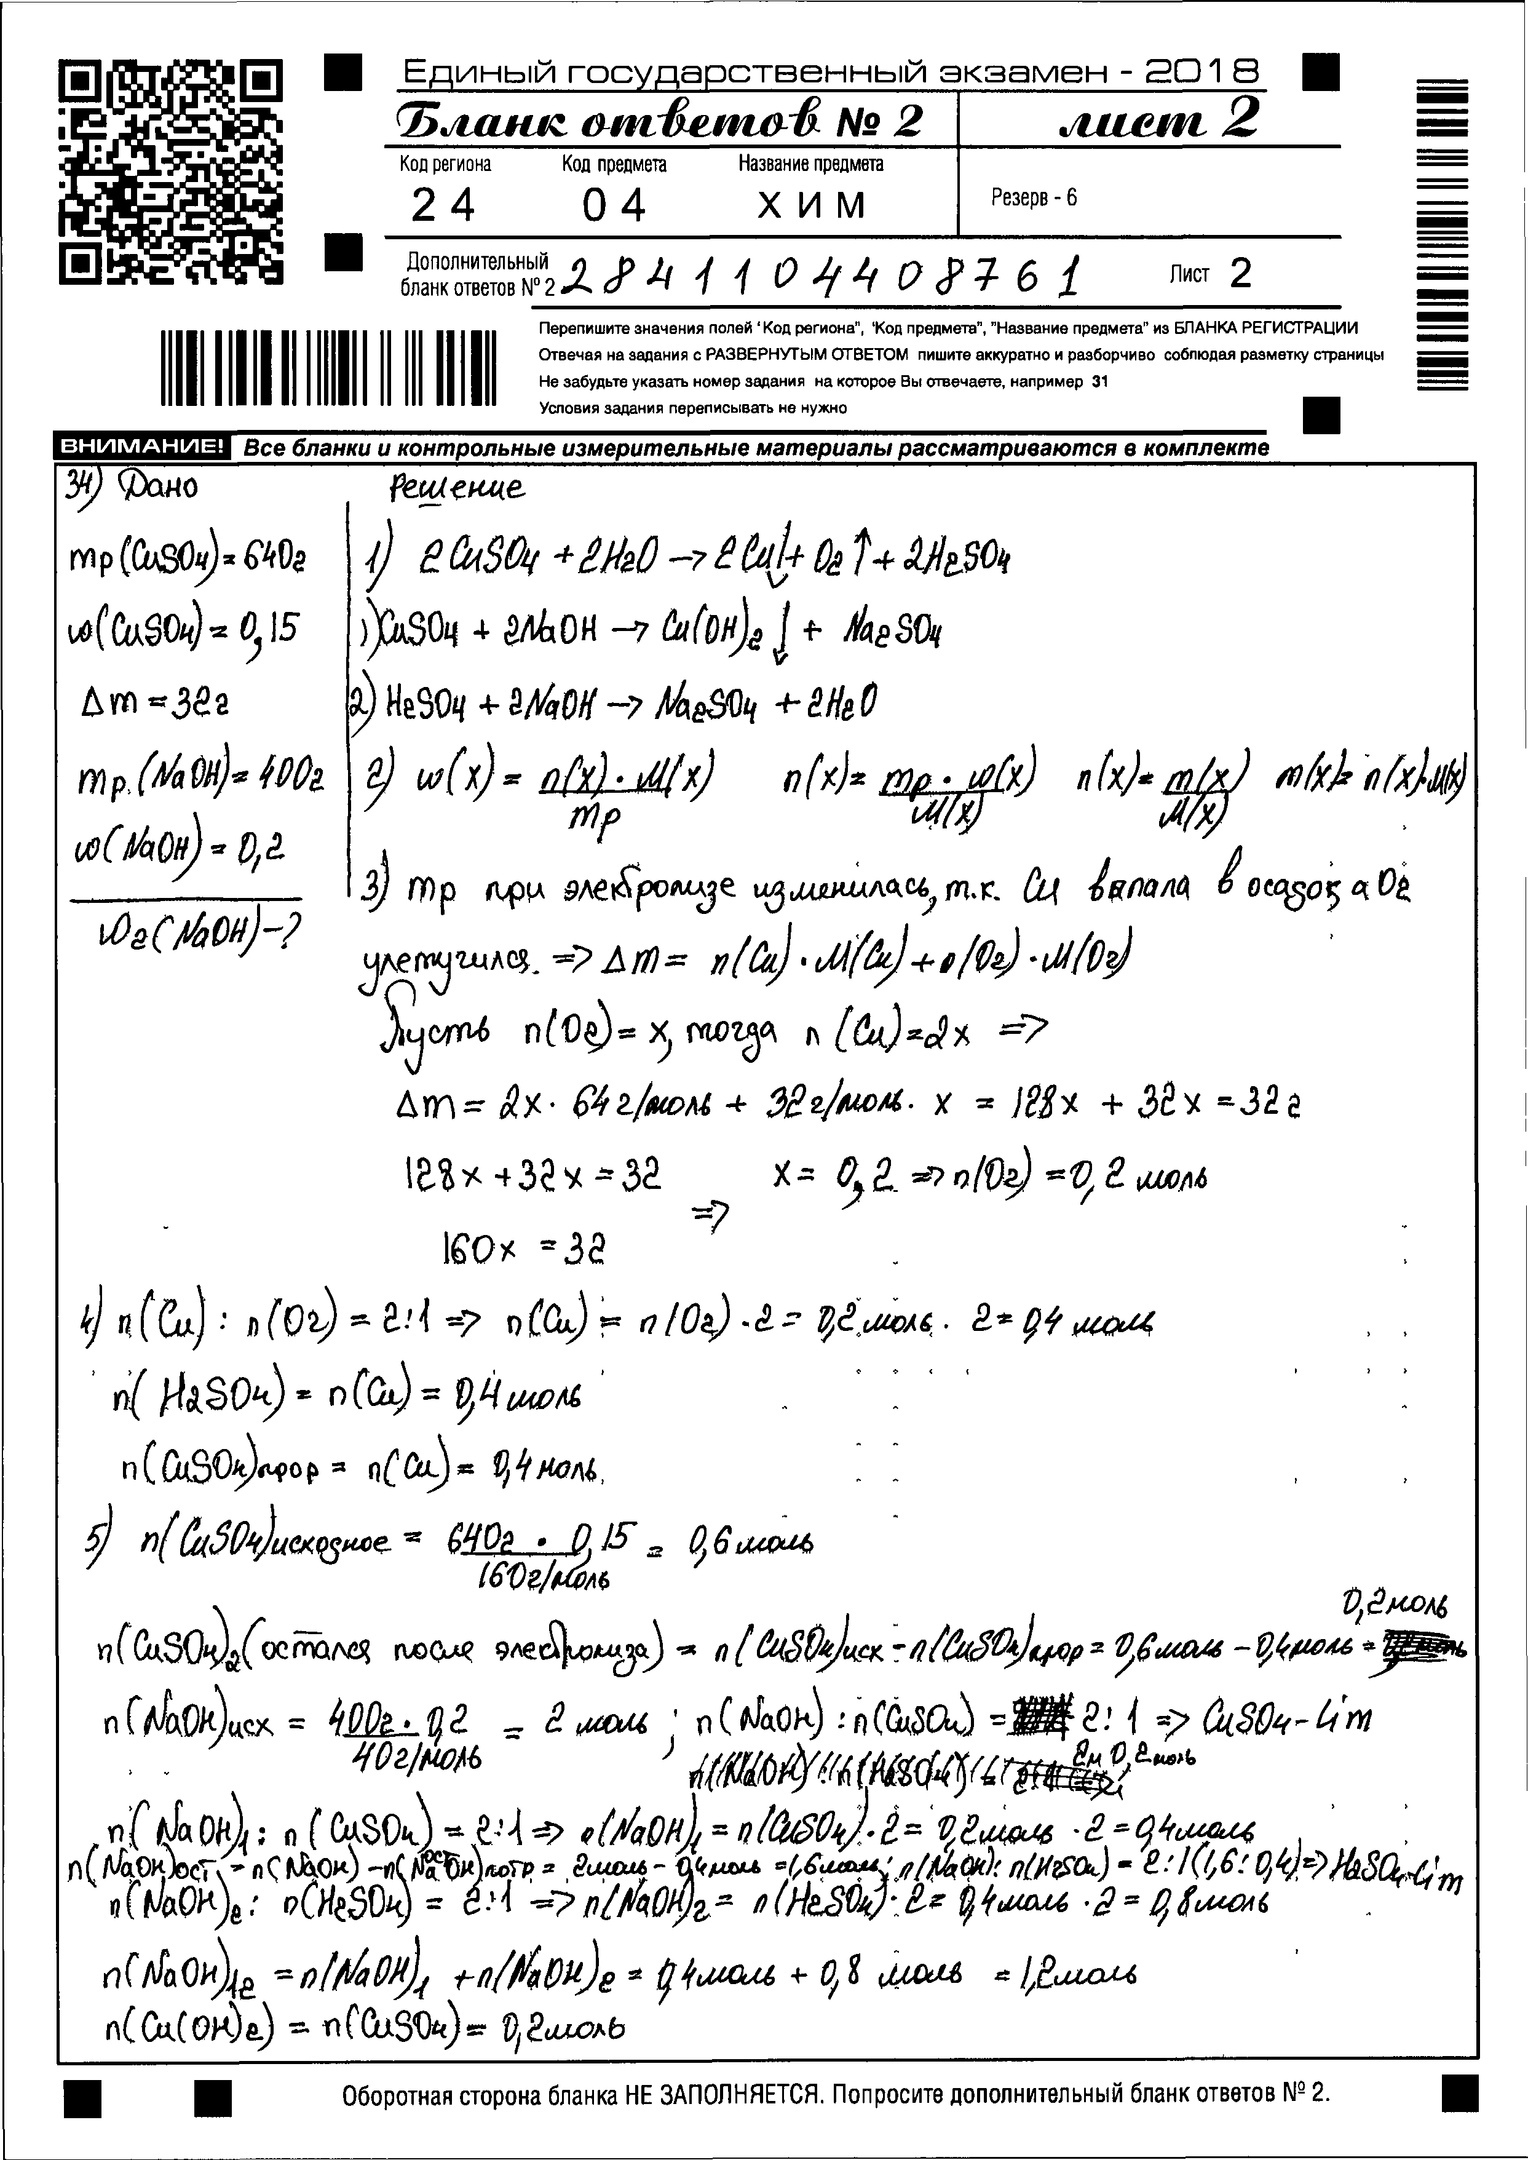 Единый государственный экзамен - 2018
Бланк ответов № 2 лист 2
Код региона Код предмета Название предмета
24 04 ХИМ Резерв - 6
Дополнительный бланк ответов № 2 2841104408761 Лист 2
Перепишите значения полей "Код региона", "Код предмета", "Название предмета" из БЛАНКА РЕГИСТРАЦИИ
Отвечая на задания с РАЗВЕРНУТЫМ ОТВЕТОМ пишите аккуратно и разборчиво соблюдая разметку страницы
Не забудьте указать номер задания на которое Вы отвечаете, например 31
Условия задания переписывать не нужно
ВНИМАНИЕ! Все бланки и контрольные измерительные материалы рассматриваются в комплекте
34) Дано
mр(CuSO4)=640г
ω(CuSO4)=0,15
Δm=32г
mр.(NaOH)=400г
ω(NaOH)=0,2
ω2(NaOH)-?
Решение
1) 2CuSO4 + 2H2O → 2Cu↓ + O2↑ + 2H2SO4
1) CuSO4 + 2NaOH → Cu(OH)2↓ + Na2SO4
2) H2SO4 + 2NaOH → Na2SO4 + 2H2O
2) ω(x) = n(x)·M(x)/mр n(x)= mр·ω(x)/M(x) n(x)= m(x)/M(x) m(x)= n(x)·M(x)
3) mр при электролизе изменилась, т.к. Cu выпала в осадок, а O2
улетучился. => Δm = n(Cu)·M(Cu)+n(O2)·M(O2)
Пусть n(O2)=x, тогда n(Cu)=2x =>
Δm = 2x·64г/моль + 32г/моль·x = 128x + 32x = 32г
128x+32x=32 => x=0,2 => n(O2)=0,2 моль
160x=32
4) n(Cu):n(O2)=2:1 => n(Cu)= n(O2)·2 = 0,2моль·2=0,4 моль
n(H2SO4)= n(Cu)=0,4моль
n(CuSO4)прор = n(Cu)= 0,4моль.
5) n(CuSO4)исходное = 640г·0,15/160г/моль = 0,6моль
n(CuSO4)2(остался после электролиза) = n(CuSO4)исх - n(CuSO4)прор = 0,6моль - 0,4моль = 0,2моль
n(NaOH)исх = 400г·0,2/40г/моль = 2 моль; n(NaOH):n(CuSO4) = 2:1 => CuSO4-lim
2 и 0,2моль
n(NaOH)1 : n(CuSO4)=2:1 => n(NaOH)1 = n(CuSO4)·2 = 0,2моль·2=0,4моль
n(NaOH)ост = n(NaOH) - n(NaOH)потр = 2моль - 0,4моль = 1,6моль; n(NaOH)ост : n(H2SO4) = 2:1(1,6:0,4) => H2SO4-lim
n(NaOH)2 : n(H2SO4) = 2:1 => n(NaOH)2 = n(H2SO4)·2 = 0,4моль·2=0,8моль
n(NaOH)12 = n(NaOH)1 + n(NaOH)2 = 0,4моль + 0,8 моль = 1,2моль
n(Cu(OH)2) = n(CuSO4)= 0,2моль
Оборотная сторона бланка НЕ ЗАПОЛНЯЕТСЯ. Попросите дополнительный бланк ответов № 2.